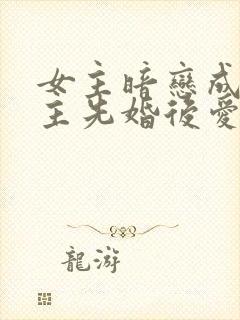 女主暗戀成
主先婚後愛
龍游